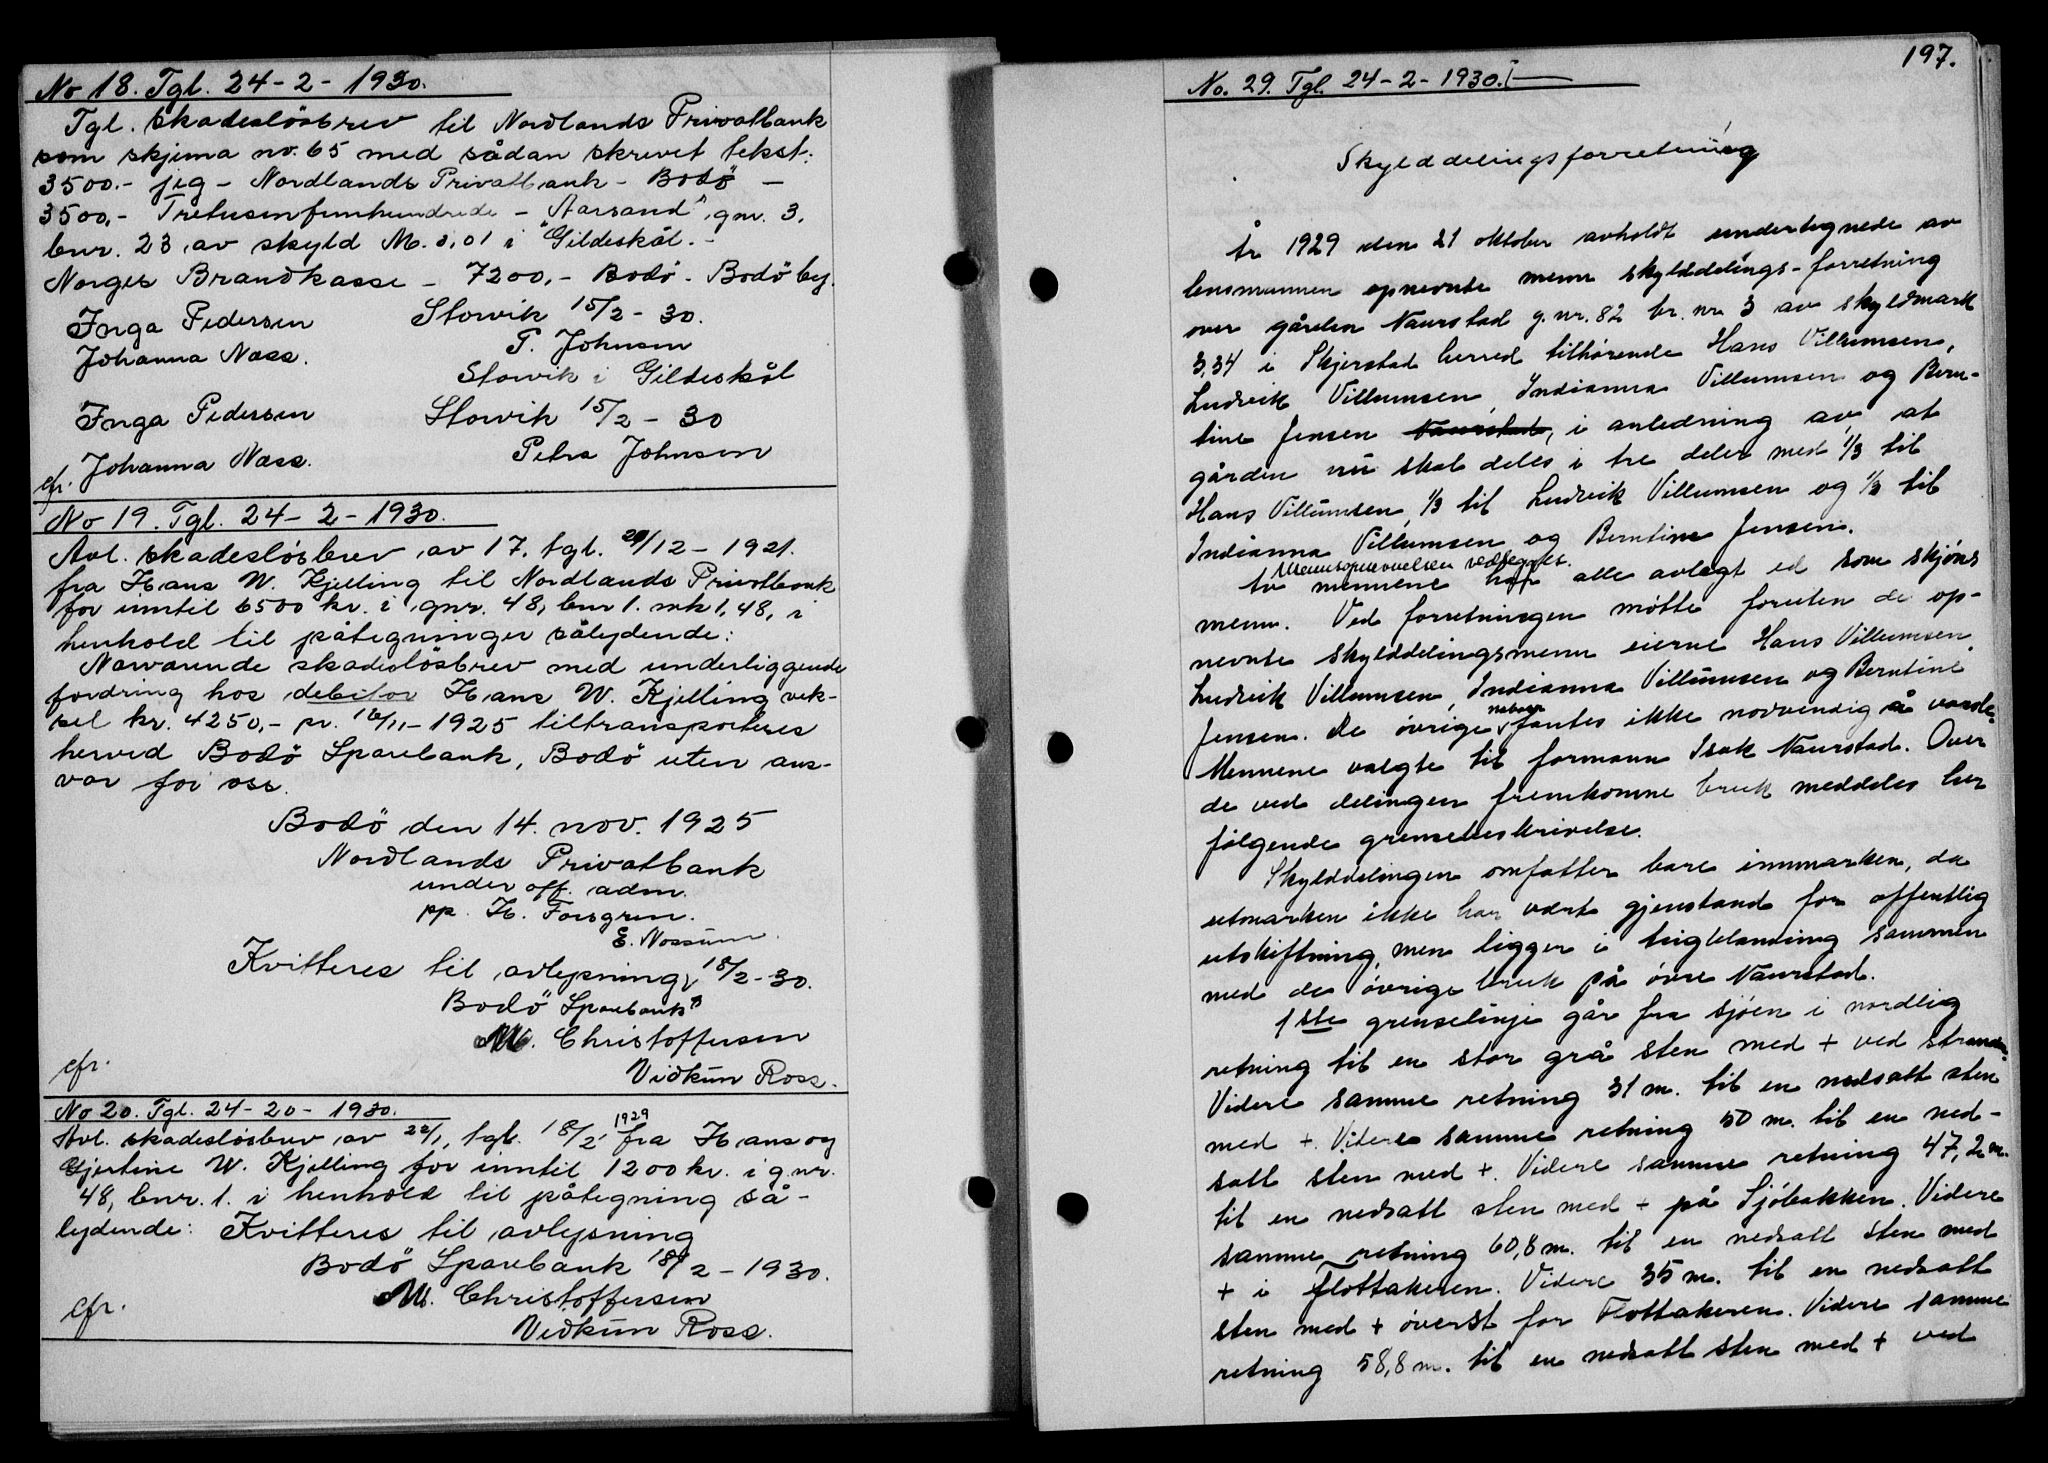 No 18. Tgl. 24-2-1930.
Tgl. skadeslösbrev til Nordlands Privatbank
som skjema nr. 65 med sådan skrevet tekst:
3500.- jeg - Nordlands Privatbank - Bodö -
3500,- Tretusenfemhundrede - "Aarsand" gnr. 3.
bnr. 23 av skyld M. 0,01 i Gildeskål.-
Norges Brandkasse - 7200,- Bodö - Bodö by.
Inga Pedersen Storvik 15/2-30.
Johanna Næss. P. Johnsen
Storvik i Gildeskål
Inga Pedersen Storvik 15/2-30
Johanna Næss. Petra Johnsen
cfr.
No 19. Tgl. 24-2-1930.
Avl. skadesløsbrev av 17. tgl. 20/12-1921.
fra Hans W. Kjelling til Nordlands Privatbank
for inntil 6500 kr. i gnr. 48, bnr 1. mk 1,48, i
henhold til påtegninger sålydende:
Nærværende skadeslösbrev med underliggende
fordring hos debitor Hans W. Kjelling vek-
sel kr. 4250,- pr. 16/11-1925 tiltransporteres
herved Bodö Sparebank, Bodö uten ans-
var for oss.
Bodö den 14. nov. 1925
Nordlands Privatbank
under off. adm.
pp. H. Forsgren.
E. Nossum.
Kvitteres til avlysning 18/2-30.
Bodö Sparebank
M. Christoffersen
cfr. Vidkun Ross.
No 20. Tgl. 24-20-1930.
1929
Avl. skadeslösbrev av 22/1, tgl. 18/2 fra Hans og
Gjertine W. Kjelling for inntil 1200 kr. i gnr.
48, bnr. 1. i henhold til påtegning så-
lydende: Kvitteres til avlysning
Bodö Sparebank 18/2-1930.
M. Christoffersen
cfr. Vidkun Ross.
197.
No. 29. Tgl. 24-2-1930.
Skylddelingsforretning
År 1929 den 21 oktober avholdt undertegnede av
lensmannen opnevnte menn skylddelings-forretning
over gården Naurstad g.nr. 82 br. nr 3 av skyldmark
3,34 i Skjerstad herred tilhørende Hans Villumsen,
Ludvik Villumsen, Indianna Villumsen og Bern-
tine Jensen Naurstad, i anledning av, at
gården nu skal deles i tre deler med 1/3 til
Hans Villumsen, 1/3 til Ludvik Villumsen og 1/3 til
Indianna Villumsen og Berntine Jensen.
Mennsopnevnelsen vedlegges.
Av mennene har alle avlagt ed som skjøns
menn. Ved forretningen møtte foruten de op-
nevnte skylddelingsmenn eierne Hans Villumsen,
Ludvik Villumsen, Indianna Villumsen og Berntine
naboer
Jensen. De øvrige fantes ikke nødvendig å varsle.
Mennene valgte til formann Isak Naurstad. Over
de ved delingen fremkomne bruk meddeles her
følgende grensebeskrivelse.
Skylddelingen omfatter bare innmarken, da
utmarken ikke har vært gjenstand for offentlig
utskiftning, men ligger i teigblanding sammen
med de øvrige bruk på övre Naurstad.
1ste grenselinje går fra sjøen i nordlig
retning til en stor grå sten med + ved stranden.
Videre samme retning 31 m. til en nedsatt sten
med +. Videre samme retning 50 m. til en ned-
satt sten med +. Videre samme retning 47,2 m.
til en nedsatt sten med + på Sjöbakken. Videre
samme retning 60,8 m. til en nedsatt sten med
+ i Flottakeren. Videre 35 m. til en nedsatt
sten med + øverst for Flottakeren. Videre samme
retning 58,8 m. til en nedsatt sten med + ved